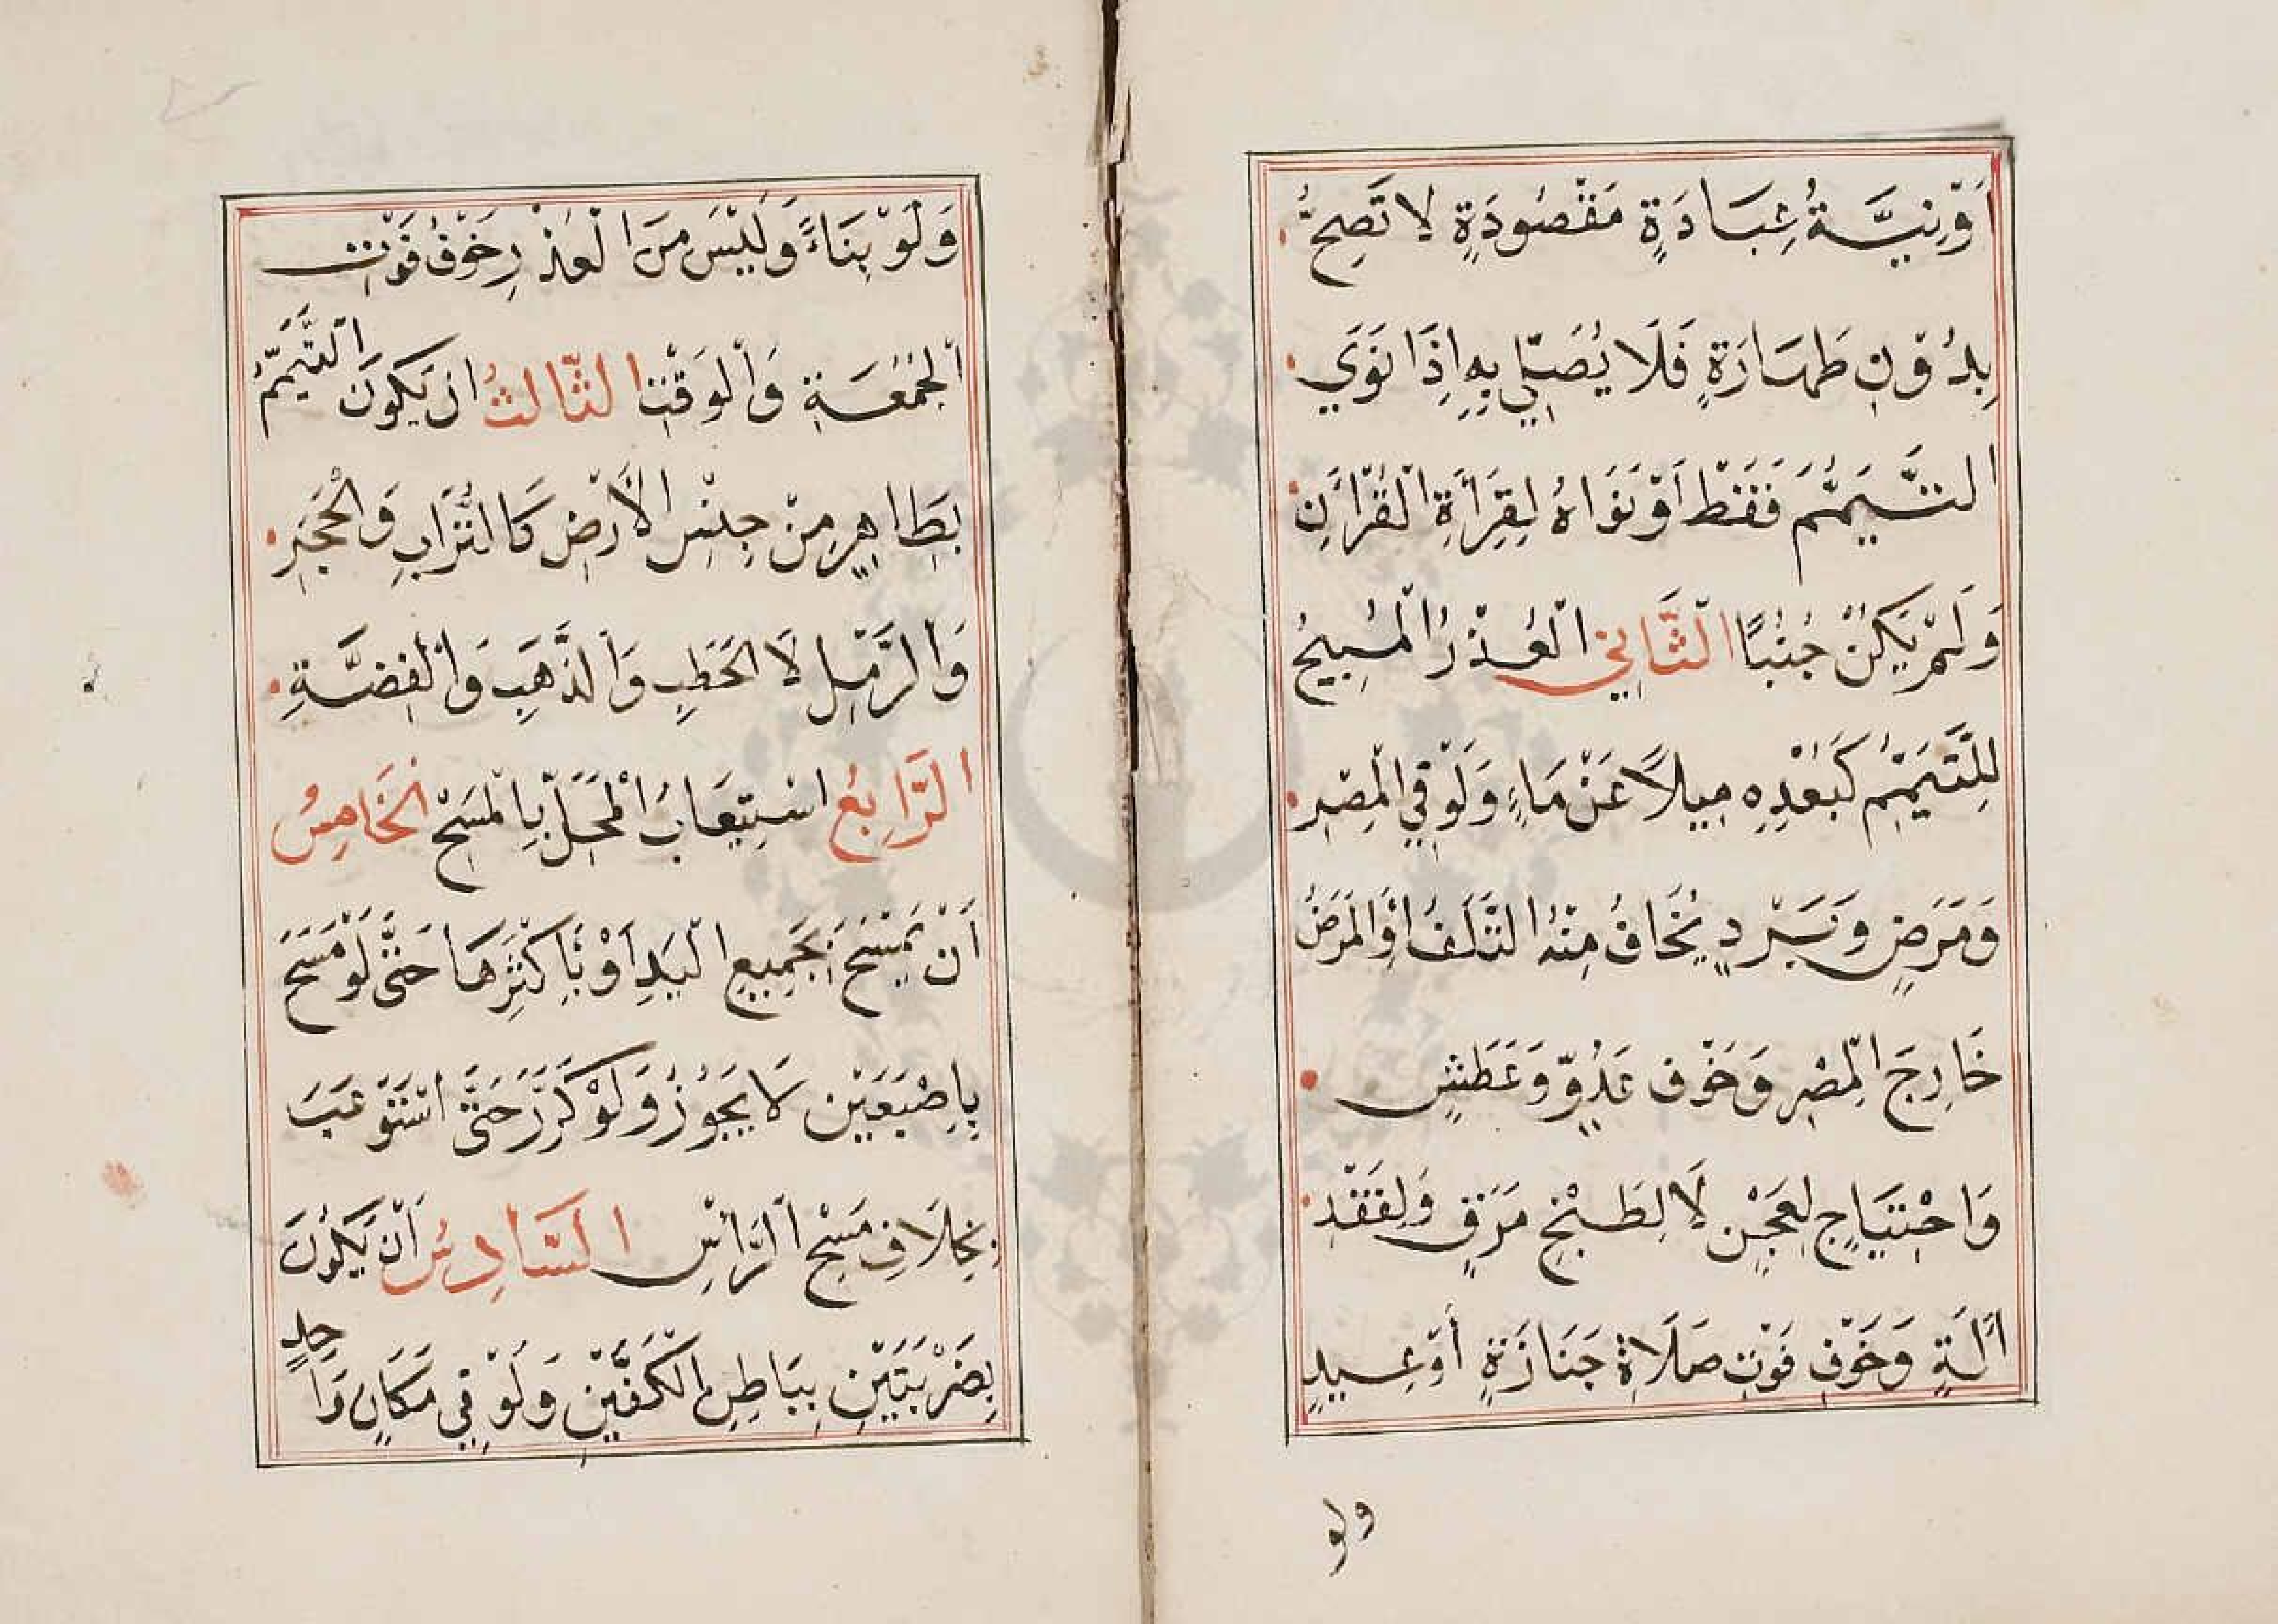 اَوْنِيَّةُ عِبَادَةٍ مَقْصُودَةٍ لَا تَصِحُّ
بِدُوْنِ طَهَارَةٍ فَلَا يُصَلِّي بِهِ اِذَا نَوَي
التَّيَمُّمَ فَقَطْ اَوْ نَوَاهُ لِقِرَأَةِ الْقُرْأَنِ
وَلَمْ يَكُنْ جُنُبًا الثَّانِي الْعُذْرُ الْمُبِيحُ
لِلتَّيَمُّمِ كَبُعْدِهِ مِيلًا عَنْ مَاءٍ وَلَوْ فِي الْمِصْرِ
وَمَرَضٍ وَبَرْدٍ يُخَافُ مِنْهُ التَّلَفُ اَوِ الْمَرَضُ
خَارِجَ الْمِصْرِ وَخَوْفِ عَدُوٍّ وَعَطَشٍ
وَاحْتِيَاجٍ لِعَجْنٍ لَا لِطَبْخِ مَرَقٍ وَلِفَقْدِ
اَلَةٍ وَخَوْفِ فَوْتِ صَلَاةِ جَنَازَةٍ أَوْ عِيدٍ
ولو
وَلَوْ بِنَاءً وَلَيْسَ مِنَ الْعُذْرِ خَوْفُ فَوْتِ
الْجُمُعَةِ وَالْوَقْتِ الثَّالِثُ اَنْ يَكُونَ التَّيَمُّمُ
بِطَاهِرٍ مِنْ جِنْسِ الْأَرْضِ كَالتُّرَابِ وَالْحَجَرِ
وَالرَّمْلِ لَا الْحَطَبِ وَالذَّهَبِ وَالْفِضَّةِ
الرَّابِعُ اسْتِيعَابُ الْمَحَلِّ بِالْمَسْحِ الْخَامِسُ
أَنْ يَمْسَحَ بِجَمِيعِ الْيَدِ اَوْ بِأَكْثَرِهَا حَتَّى لَوْ مَسَحَ
بِاِصْبَعَيْنِ لَا يَجُوْزُ وَلَوْ كَرَّرَ حَتَّى اسْتَوْعَبَ
بِخِلَافِ مَسْحِ الرَّأْسِ السَّادِسُ أَنْ يَكُونَ
بِضَرْبَتَيْنِ بِبَاطِنِ الْكَفَّيْنِ وَلَوْ فِي مَكَانٍ وَاحِدٍ